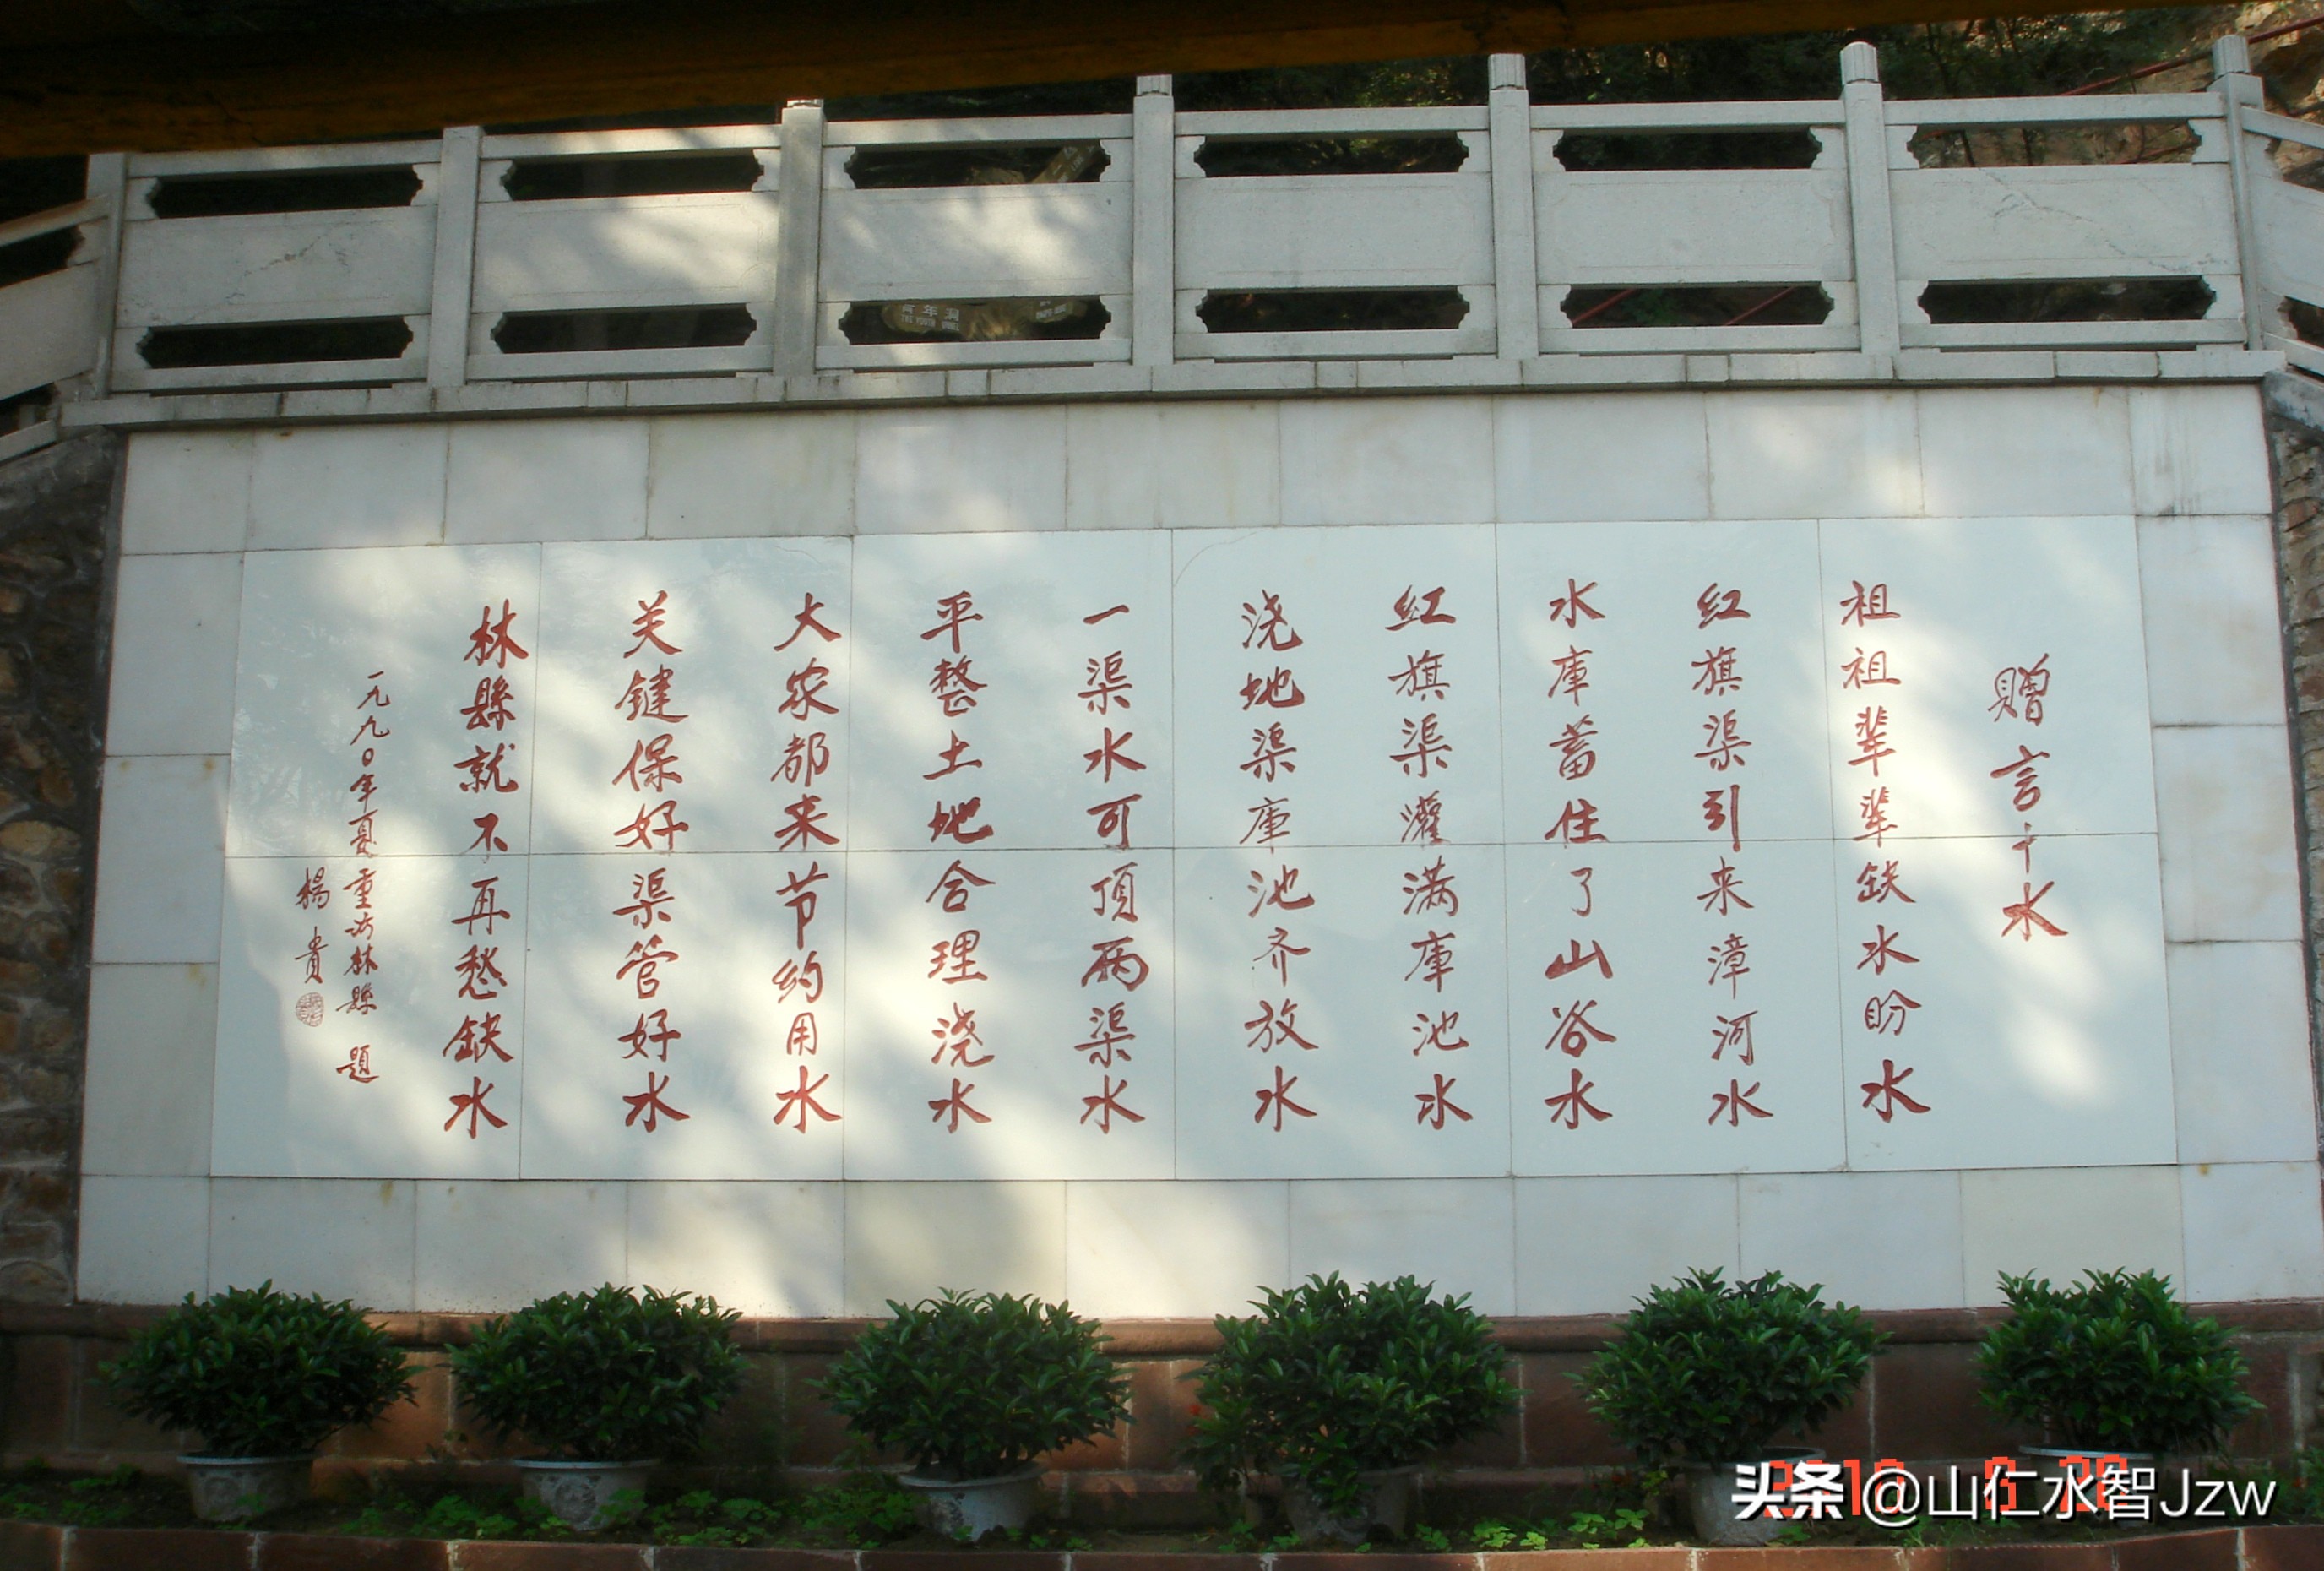 赠言十水
祖祖辈辈缺水盼水
红旗渠引来漳河水
水库蓄住了山谷水
红旗渠灌满库池水
浇地渠库池齐放水
一渠水可顶两渠水
平整土地合理浇水
大家都来节约用水
关键保好渠管好水
林縣就不再愁缺水
一九九〇年夏重访林縣 题
楊貴
青年洞
THE YOUTH
头条@山仁水智Jzw